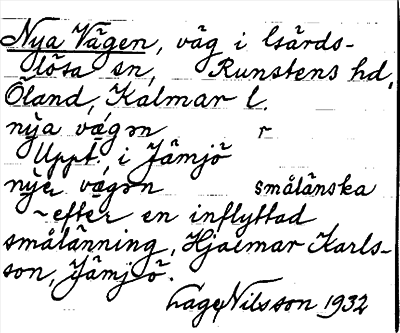 Nya Vägen, väg i Gårds-
lösa sn, Runstens hd,
Öland, Kalmar l.
nya vägən r
Uppt. i Jämjö
nyɐr vägən småländska
~ efter en inflyttad
smålänning, Hjalmar Karls-
son, Jämjö.
Lage Nilsson 1932